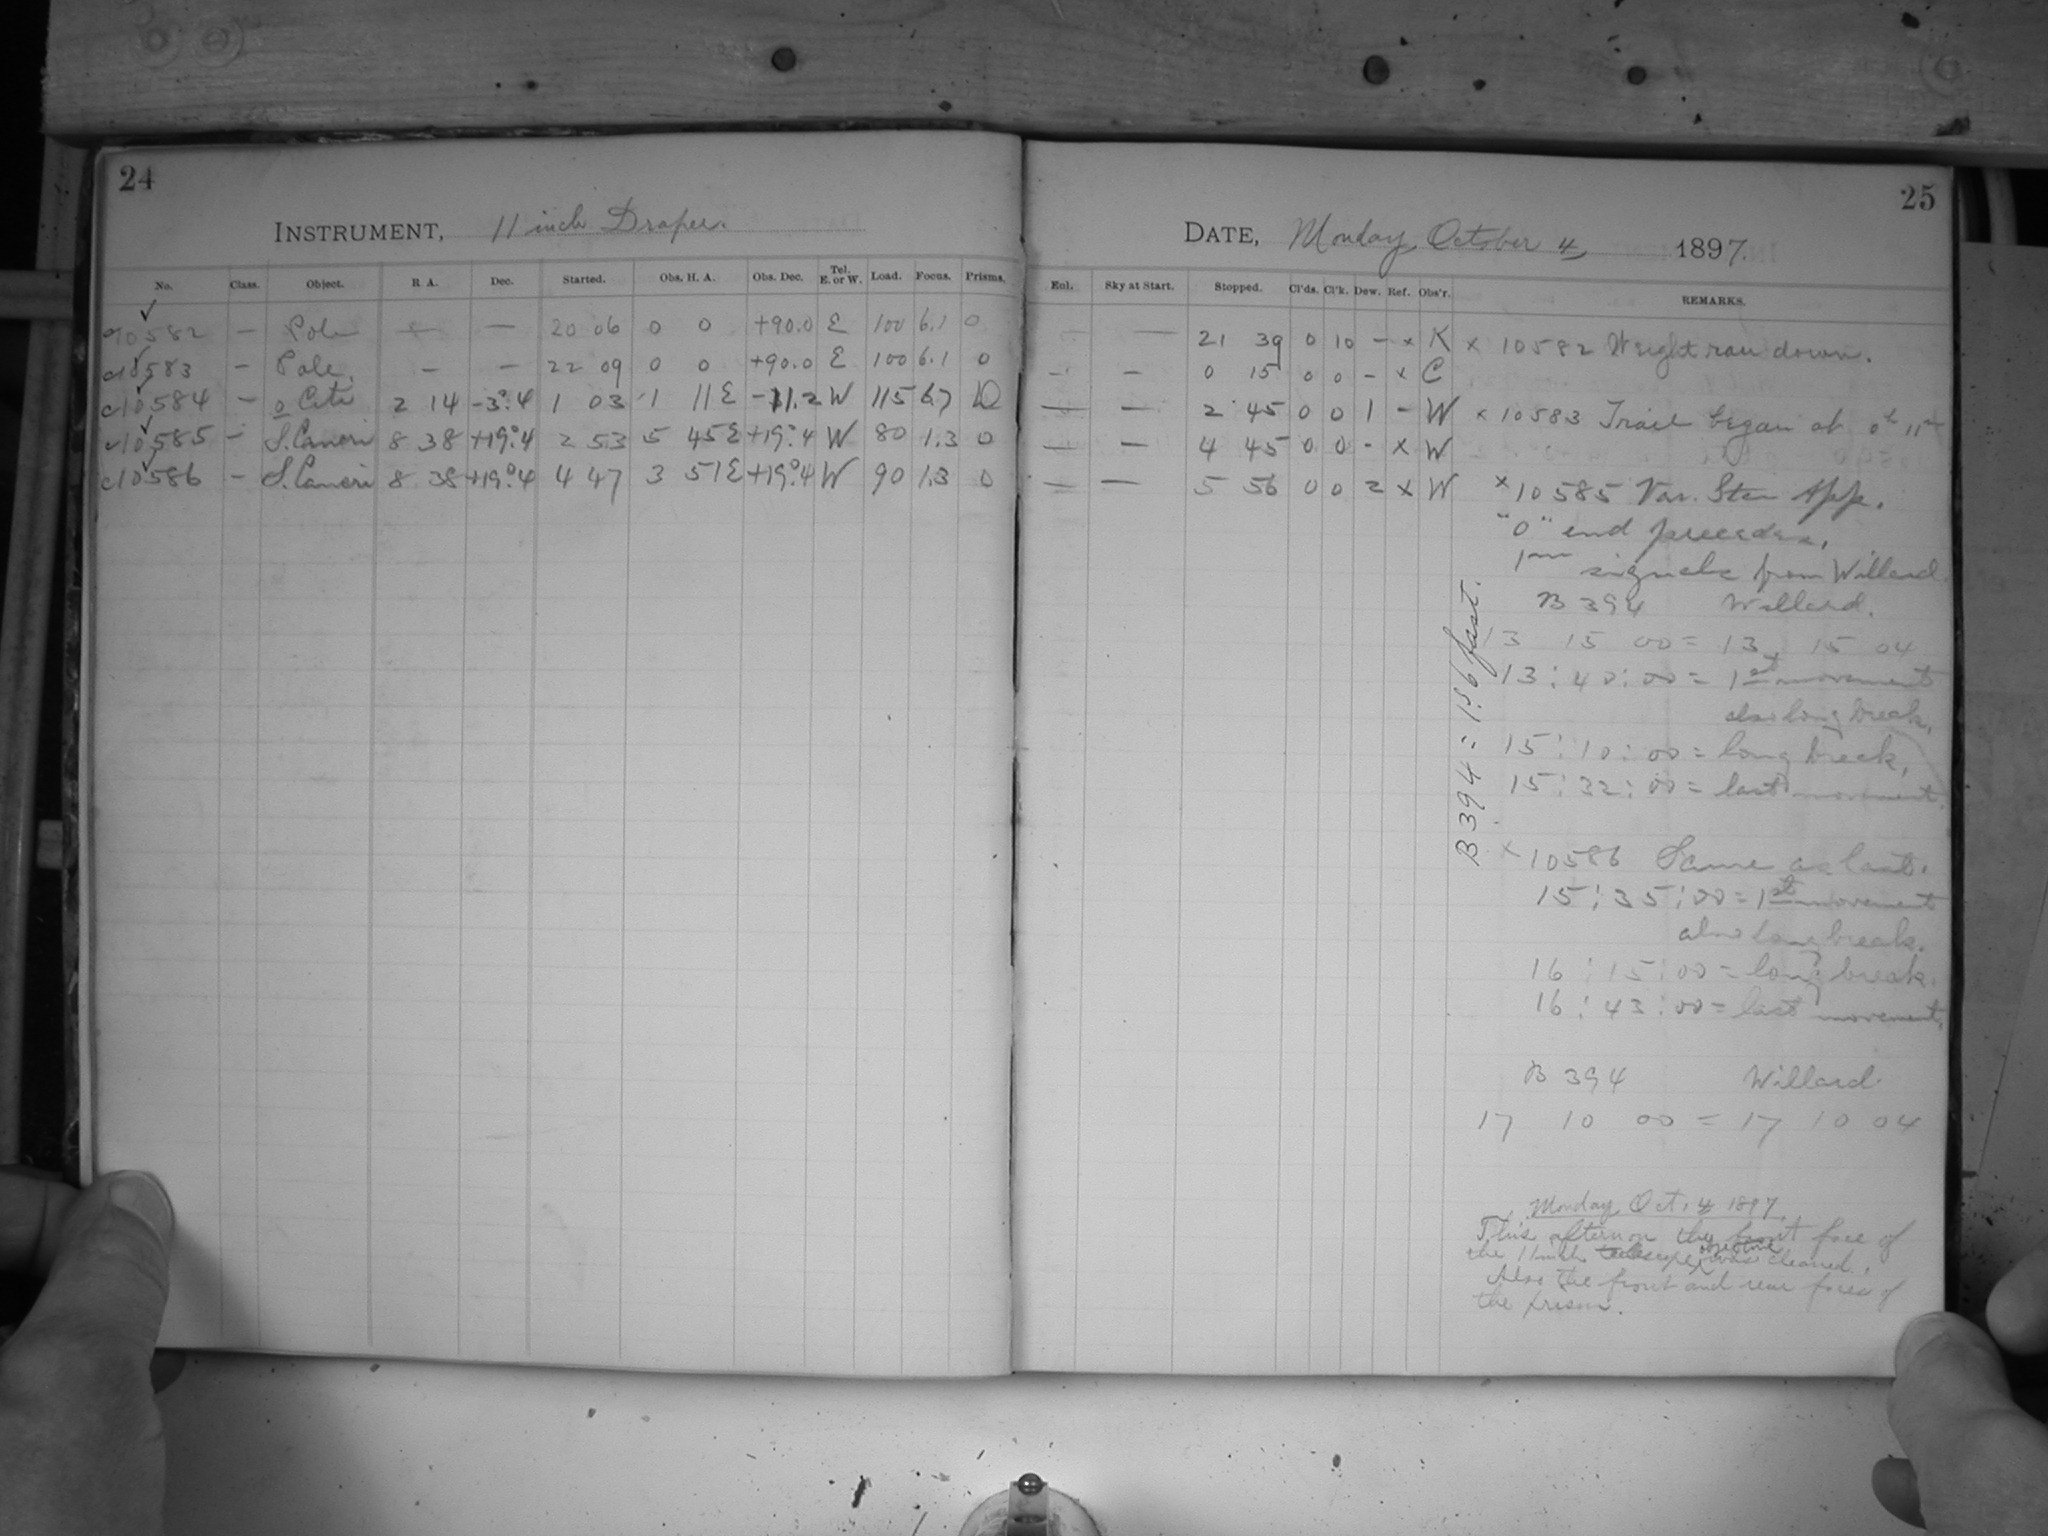 24
INSTRUMENT, 11 inch Draper.
No. Class. Object. R. A. Dec. Started. Obs. H. A. Obs. Dec. Tel. E. or W. Load. Focus. Prisms.
c10582 — Pole — — 20 06 0 0 +90.0 E 100 6.1 0
c10583 — Pole. — — 22 09 0 0 +90.0 E 100 6.1 0
c10584 — o Ceti 2 14 -3°.4 1 03 1 11E -11.2 W 115 6.7 D
c10585 — S. Cancri 8 38 +19°.4 2 53 5 45E +19°.4 W 80 1.3 0
c10586 — S. Cancri 8 38 +19°.4 4 47 3 51E +19°.4 W 90 1.3 0
25
DATE, Monday October 4, 1897.
Sky at Start. Stopped. Cl'ds. Cl'k. Dew. Ref. Obs'r. REMARKS.
— — 21 39 0 10 - x K x 10582 Weight ran down.
— — 0 15 0 0 - x C
— — 2 45 0 0 1 - W x 10583 Trail began at 0h 11m
— — 4 45 0 0 - x W
— — 5 56 0 0 2 x W x 10585 Var. Star App.
"0" end precedes.
1m signals from Willard.
B 394 Willard.
13 15 00 = 13 15 04
13 : 40 : 00 = 1st movement
also long break.
15 : 10 : 00 = long break.
15 : 32 : 00 = last movement.
B 394 = 1s.6 fast.
x 10586 Same as last.
15 : 35 : 00 = 1st movement
also long break.
16 : 15 : 00 = long break.
16 : 43 : 00 = last movement.
B 394 Willard
17 10 00 = 17 10 04
Monday Oct. 4 1897.
This afternoon the front face of
the 11 inch telescope objective was cleaned.
Also the front and rear faces of
the prism.